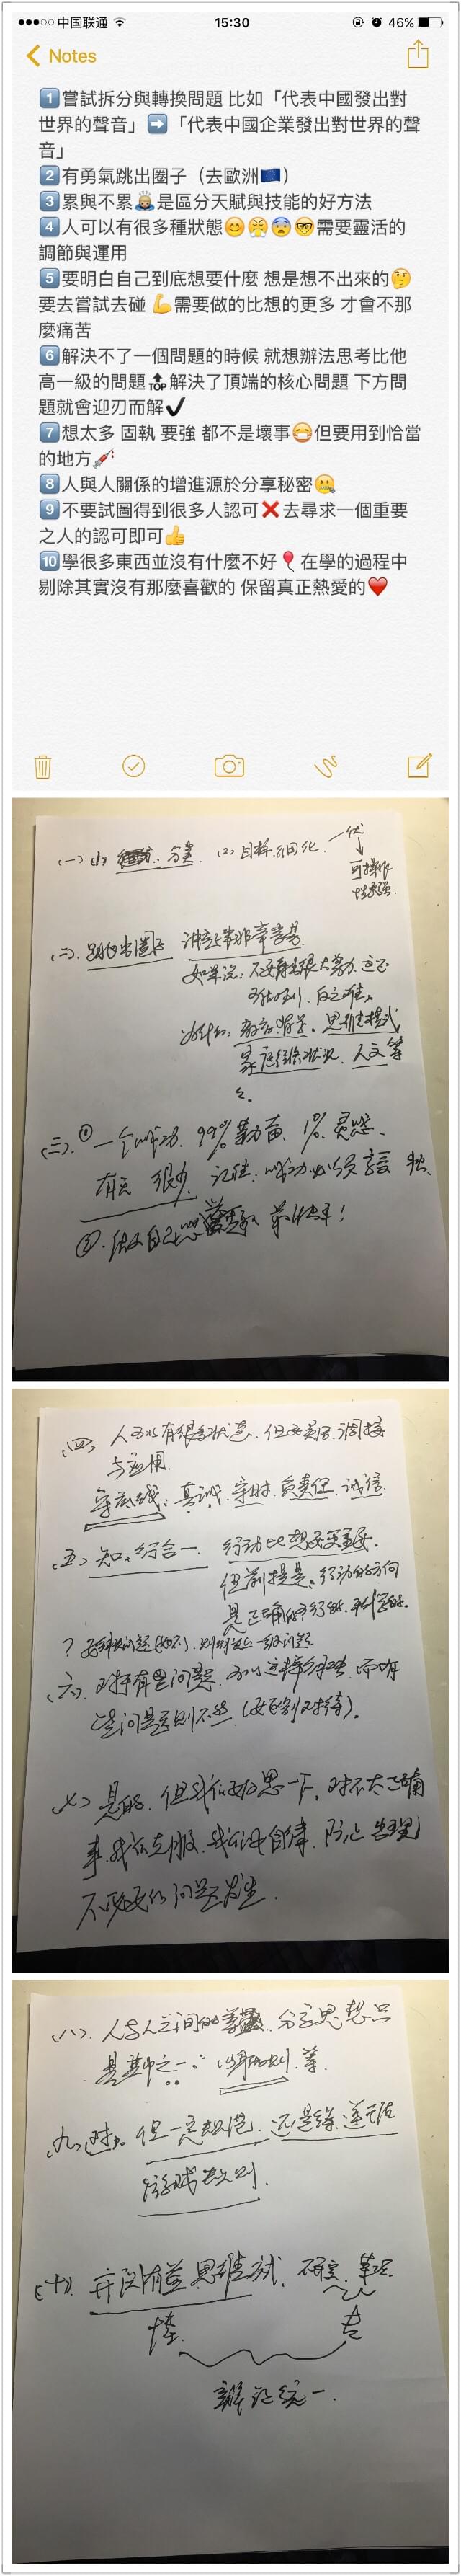 中国联通
15:30
46%
Notes
1嘗試拆分與轉換問題 比如「代表中國發出對
世界的聲音」➡「代表中國企業發出對世界的聲
音」
2有勇氣跳出圈子（去歐洲🇪🇺）
3累與不累🙇是區分天賦與技能的好方法
4人可以有很多種狀態😊😤😨🤓需要靈活的
調節與運用
5要明白自己到底想要什麼 想是想不出來的🤔
要去嘗試去碰 💪需要做的比想的更多 才會不那
麼痛苦
6解決不了一個問題的時候 就想辦法思考比他
高一級的問題🔝解決了頂端的核心問題 下方問
題就會迎刃而解✔
7想太多 固執 要強 都不是壞事😷但要用到恰當
的地方💉
8人與人關係的增進源於分享秘密🤐
9不要試圖得到很多人認可❌去尋求一個重要
之人的認可即可👍
10學很多東西並沒有什麼不好🎈在學的過程中
剔除其實沒有那麼喜歡的 保留真正熱愛的❤
(一) (1) 分类. (2) 目标细化.
可操作
性更强.
(二) 跳出圈子 讲起来非常容易
如果说: 不要有很大努力
为什么: 教育背景. 思维模式
家庭经济状况. 人文等
(三). ① 一个成功. 99%勤奋. 1%灵感.
有天 很少 记住: 成功必须享受孤独.
② 做自己 最快乐!
(四) 人可以有很多状态. 但要灵活调接
与应用.
守底线: 真诚. 守时. 负责任. 诚信.
(五) 知行合一. 行动比想更重要.
但前提是: 行动的方向
是正确的
(六). 对持有些问题. 可以这样处理. 而有
些问题否则不然. (要区别对待).
(七) 是的. 但我们要反思一下. 对不太正确
事. 我们克服. 我们要自律. 防止出现
不必要的问题发生.
(八). 人与人之间的 分享思想只
是其中之一: 等.
(九) 对. 但一定规范. 还是得遵循
游戏规则.
(十). 开阔有益思维
博. 专
辩证统一.